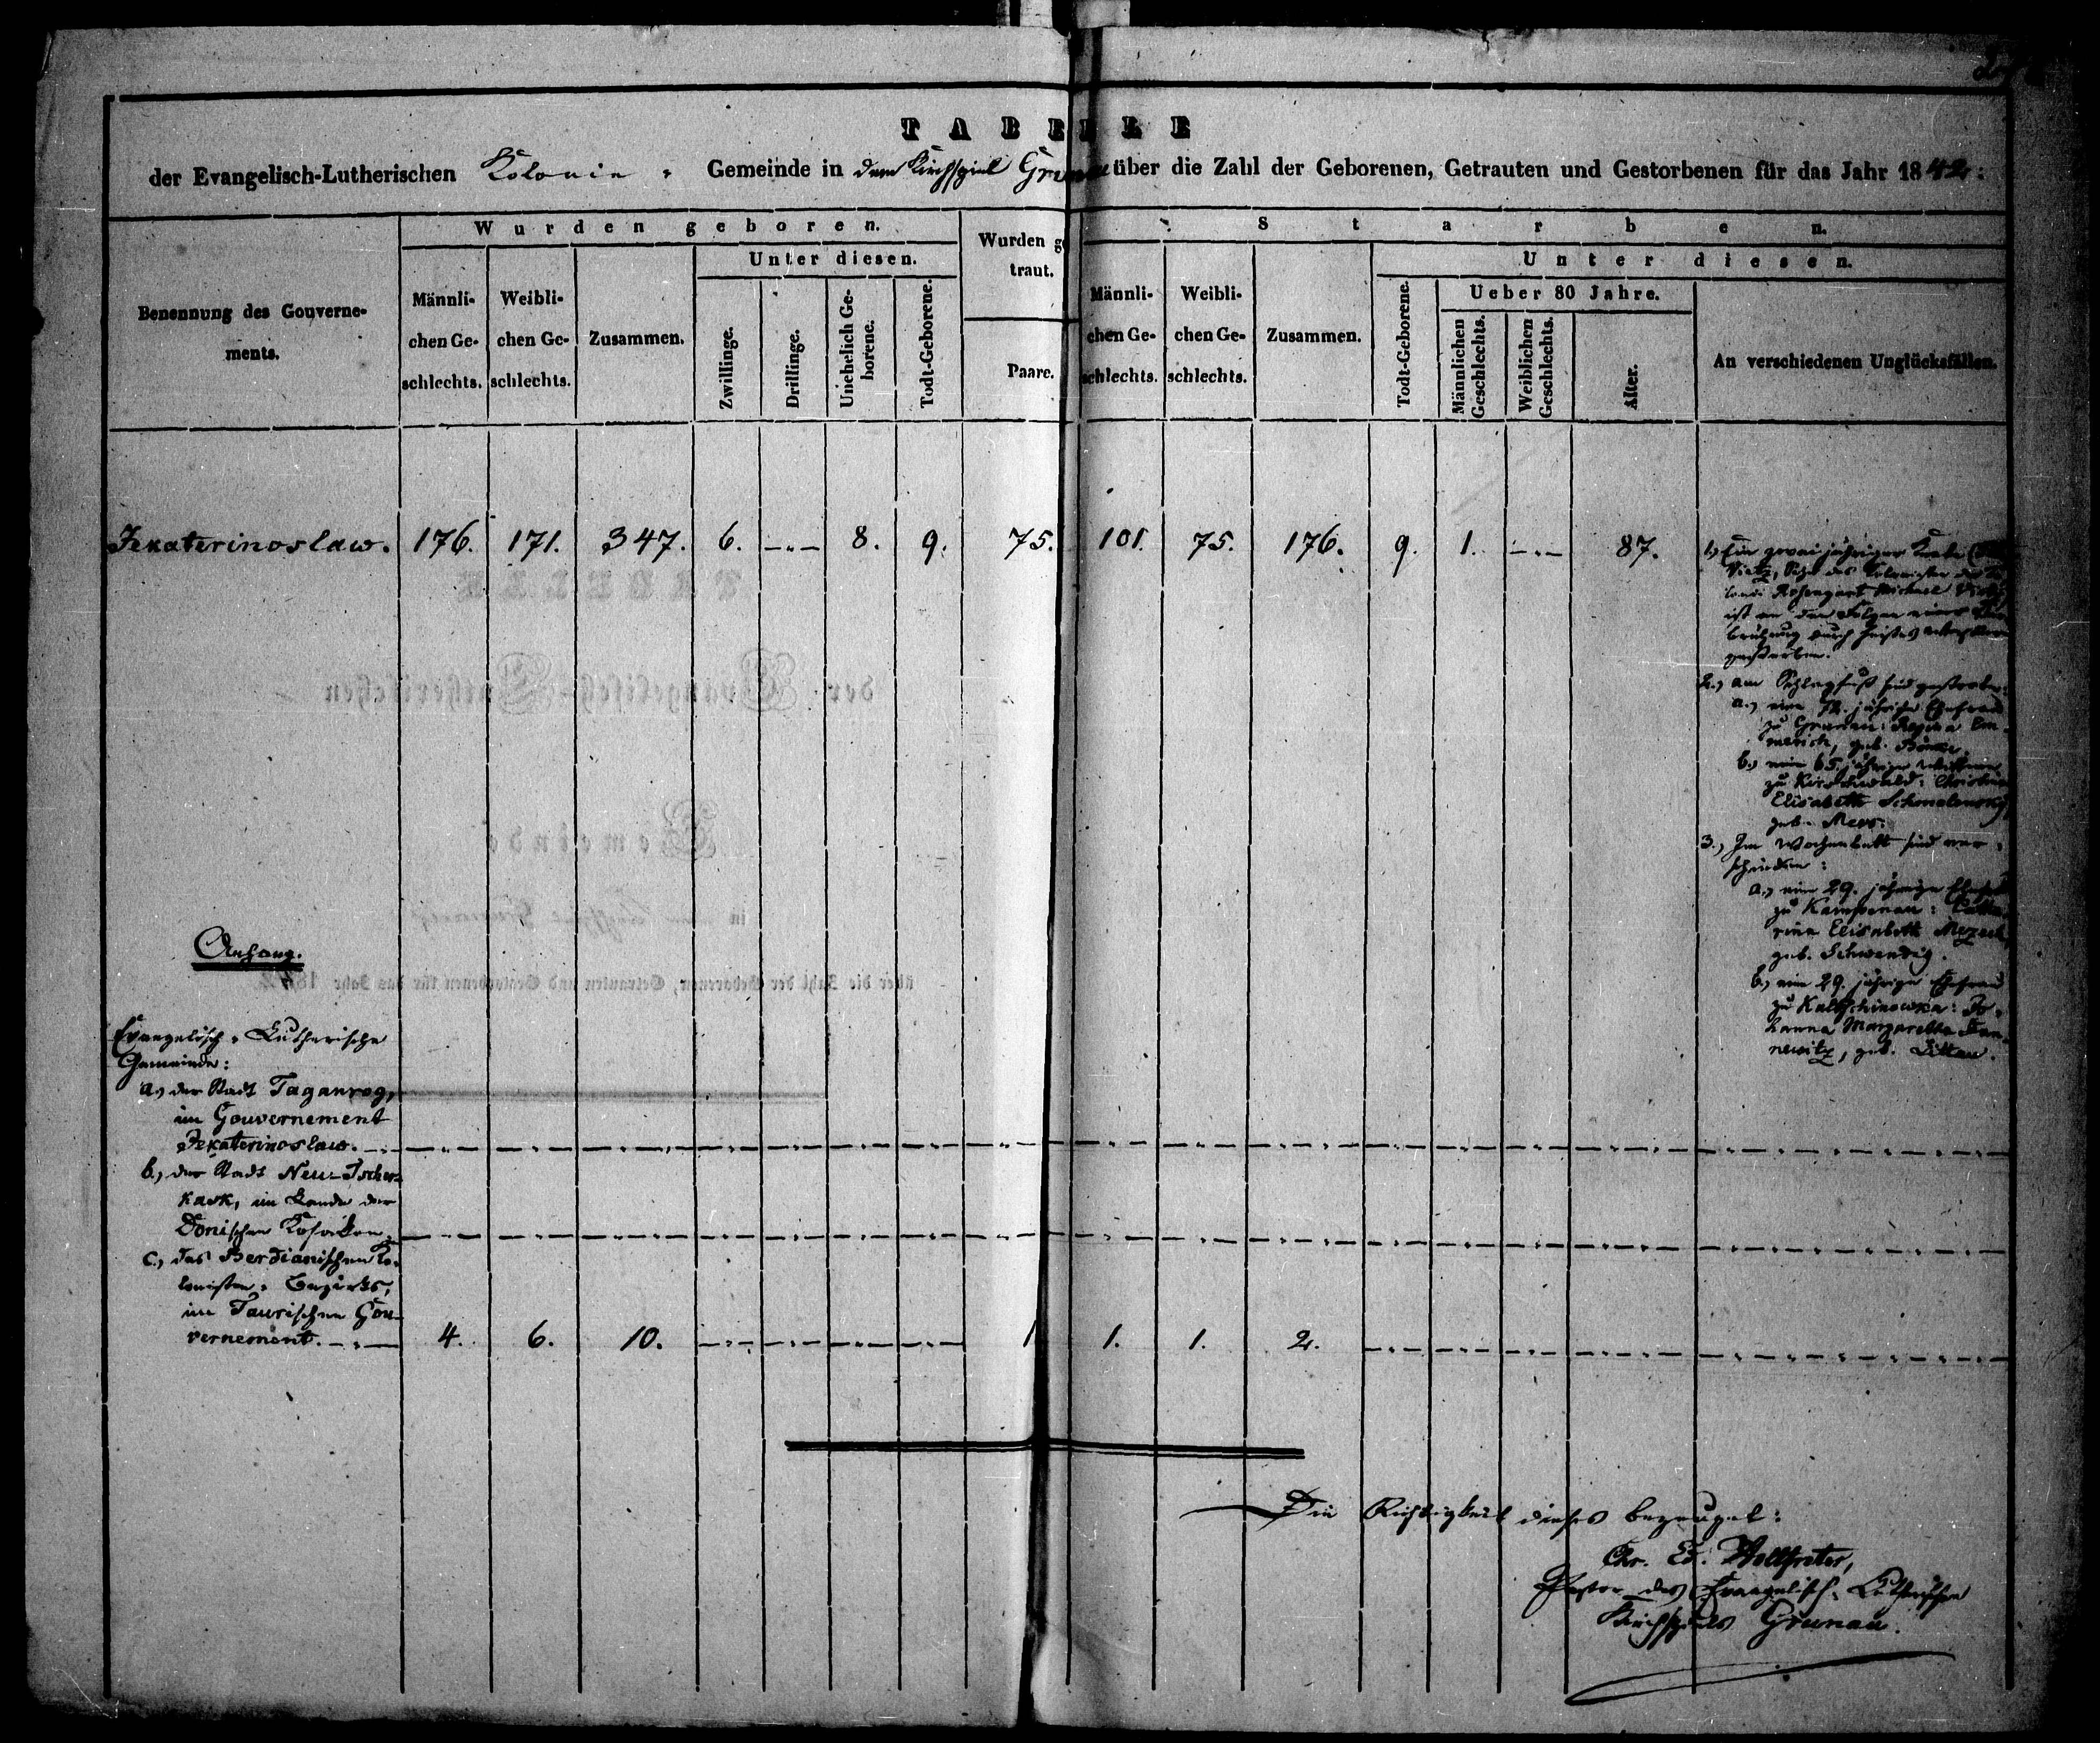 TABELLE
der Evangelisch-Lutherischen Kolonie- Gemeinde in dem Kirchspiel Grunau über die Zahl der Geborenen, Getrauten und Gestorbenen für das Jahr 1842.
Benennung des Gouverne-
ments.
Wurden geboren.
Männli-
chen Ge-
schlechts.
Weibli-
chen Ge-
schlechts.
Zusammen.
Unter diesen.
Zwillinge.
Drillinge.
Unehelich Ge-
borene.
Todt-Geborene.
Wurden ge
traut.
Paare.
Starben.
Männli-
chen Ge-
schlechts.
Weibli-
chen Ge-
schlechts.
Zusammen.
Unter diesen.
Todt-Geborene.
Ueber 80 Jahre.
Männlichen
Geschlechts.
Weiblichen
Geschlechts.
Alter.
An verschiedenen Unglücksfällen.
Jekaterinoslaw. 176. 171. 347. 6. -"- 8. 9. 75. 101. 75. 176. 9. 1. -"- 87.
1.) Ein zweijähriger Knabe
Vietz, Sohn des Kolonisten der
lonie Rosengart Michael Vietz
ist an den Folgen einer
brühung durch heißes
gestorben.
2.) am Schlagfluß sind gestorben:
a.) eine 72. jährige Ehefrau
zu Grunau: Regina Em-
merich, geb.
b.) eine 65. jährige Wittwe
zu Kirschwald: Christine
Elisabeth Schmalensky,
geb.
3.) Im Wochenbett sind ver-
schieden:
a.) eine 29. jährige Ehefrau
zu Kampenau: Catha-
rina Elisabeth
geb. Schwendig.
b.) eine 29. jährige Ehefrau
zu Kaltschinowka: Jo-
hanna Margaretha Dan-
newitz, geb. Littau.
Anhang.
Evangelisch-Lutherische
Gemeinde:
a.) der Stadt Taganrog,
im Gouvernement
Jekaterinoslaw.
b.) der Stadt Neu-Tscher-
kask, im Lande der
Donischen Kosacken.
c.) des Berdianischen Ko-
lonisten-Bezirks,
im Taurischen Gou-
vernement. 4. 6. 10. 1 1. 1. 2.
Die Richtigkeit dieses bezeuget:
Chr. Ed. Wollfreter,
Pastor des Evangelisch-Lutherischen
Kirchspiels Grunau.